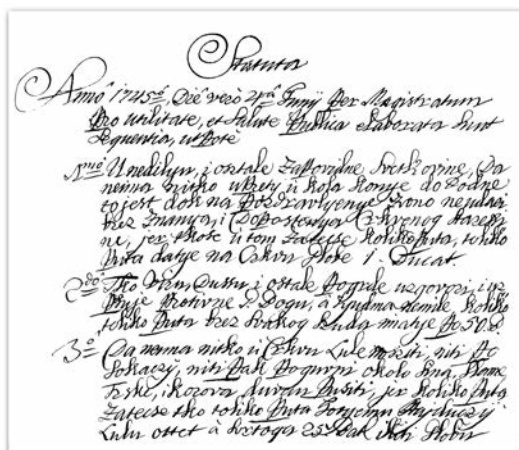 Statuta
Anno 1745to, Die vero 2da Junij Per Magistratum
Pro utilitate, et Salute Publica elaborata sunt
Sequentia, ut Pote
1mo U nedilyu, i ostale Zapovidne Svetkovine, Da
neima nitko u kola Konye do Podne
to jest dok na Pozdravlyenye Zvono
brez Znanya, i Dopostenya Czrkvenog
ne, jer tkose u tom Zatecse Koliko Puta, toliko
Puta datye na Czrkvu Plate 1. Ducat.
2do Tko Viru, Dussu i ostale Pogrde uzgovori, i
Psuje Protivne S. Bogu, a Lyudma nemile Koliko
toliko Puta brez Svakog Suda imatye Po 50
3o Da neima nitko u Czrkvu Lule nositi, niti Po
Sokaczy, niti Pak Po guvni okolo Sina, Slame
i kozova duvan Pusiti, jer Koliko Puta
Zatecse tko toliko Puta Hajduczy
Lulu ottet a k toga 25 Pak